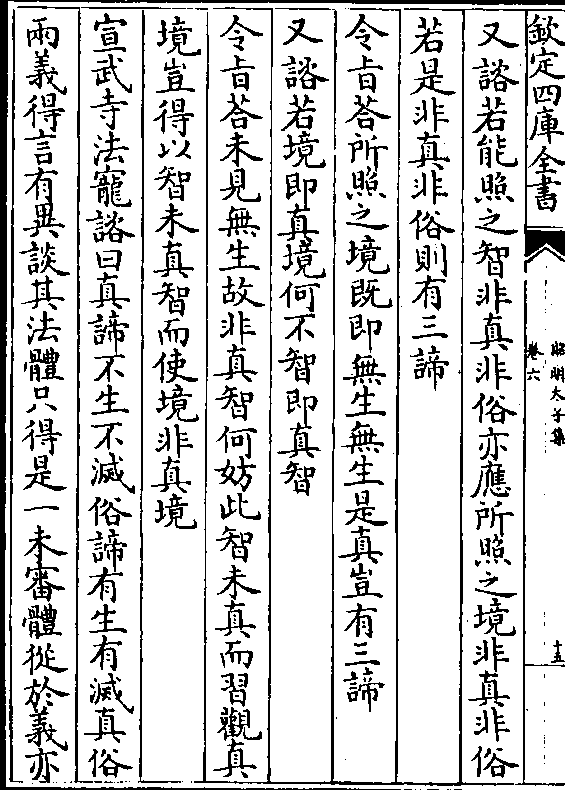 欽定四庫全書
昭明太子集
卷六
十五
又諮若能照之智非真非俗亦應所照之境非真非俗
若是非真非俗則有三諦
令旨荅所照之境既即無生無生是真豈有三諦
又諮若境即真境何不智即真智
令旨荅未見無生故非真智何妨此智未真而習觀真
境豈得以智未真智而使境非真境
宣武寺法寵諮曰真諦不生不滅俗諦有生有滅真俗
兩義得言有異談其法體只得是一未審體從於義亦